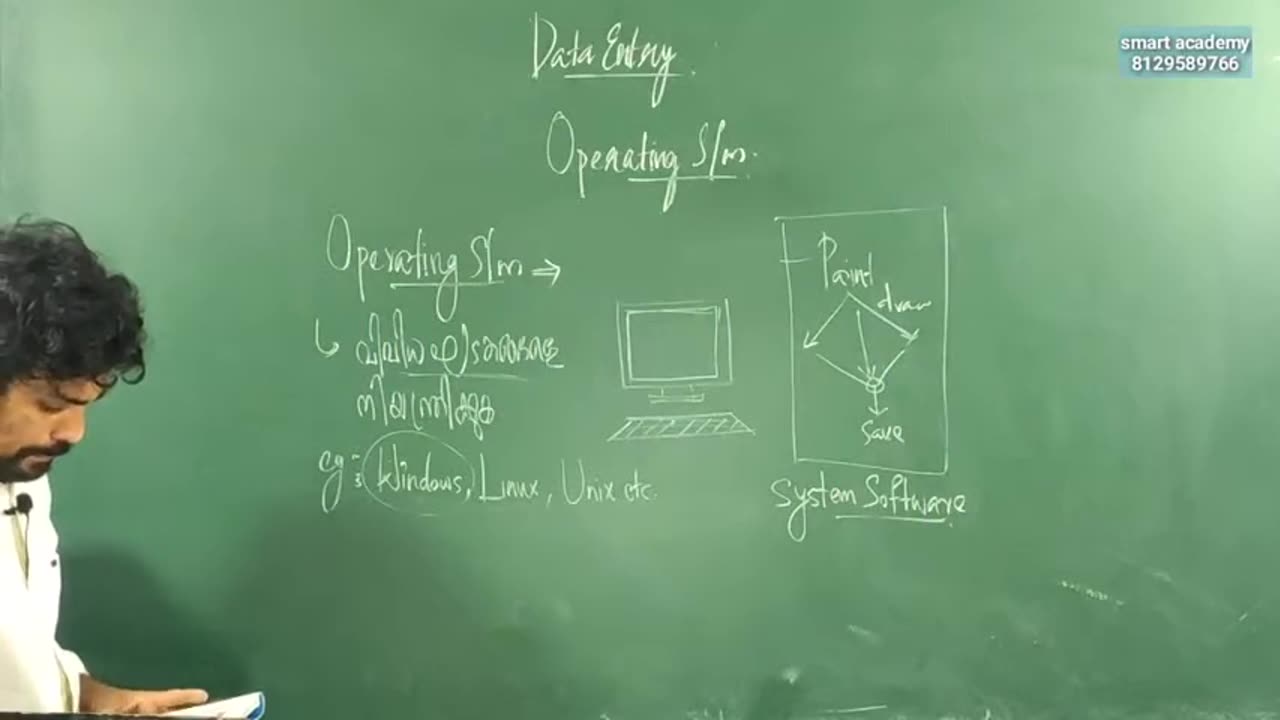 Data Entry
smart academy
8129589766
Operating S/m.
Operating S/m ⇒
വിവിധ ഘടകങ്ങളെ
നിയന്ത്രിക്കുക
eg:- Windows, Linux, Unix etc.
Paint
draw
save
System Software